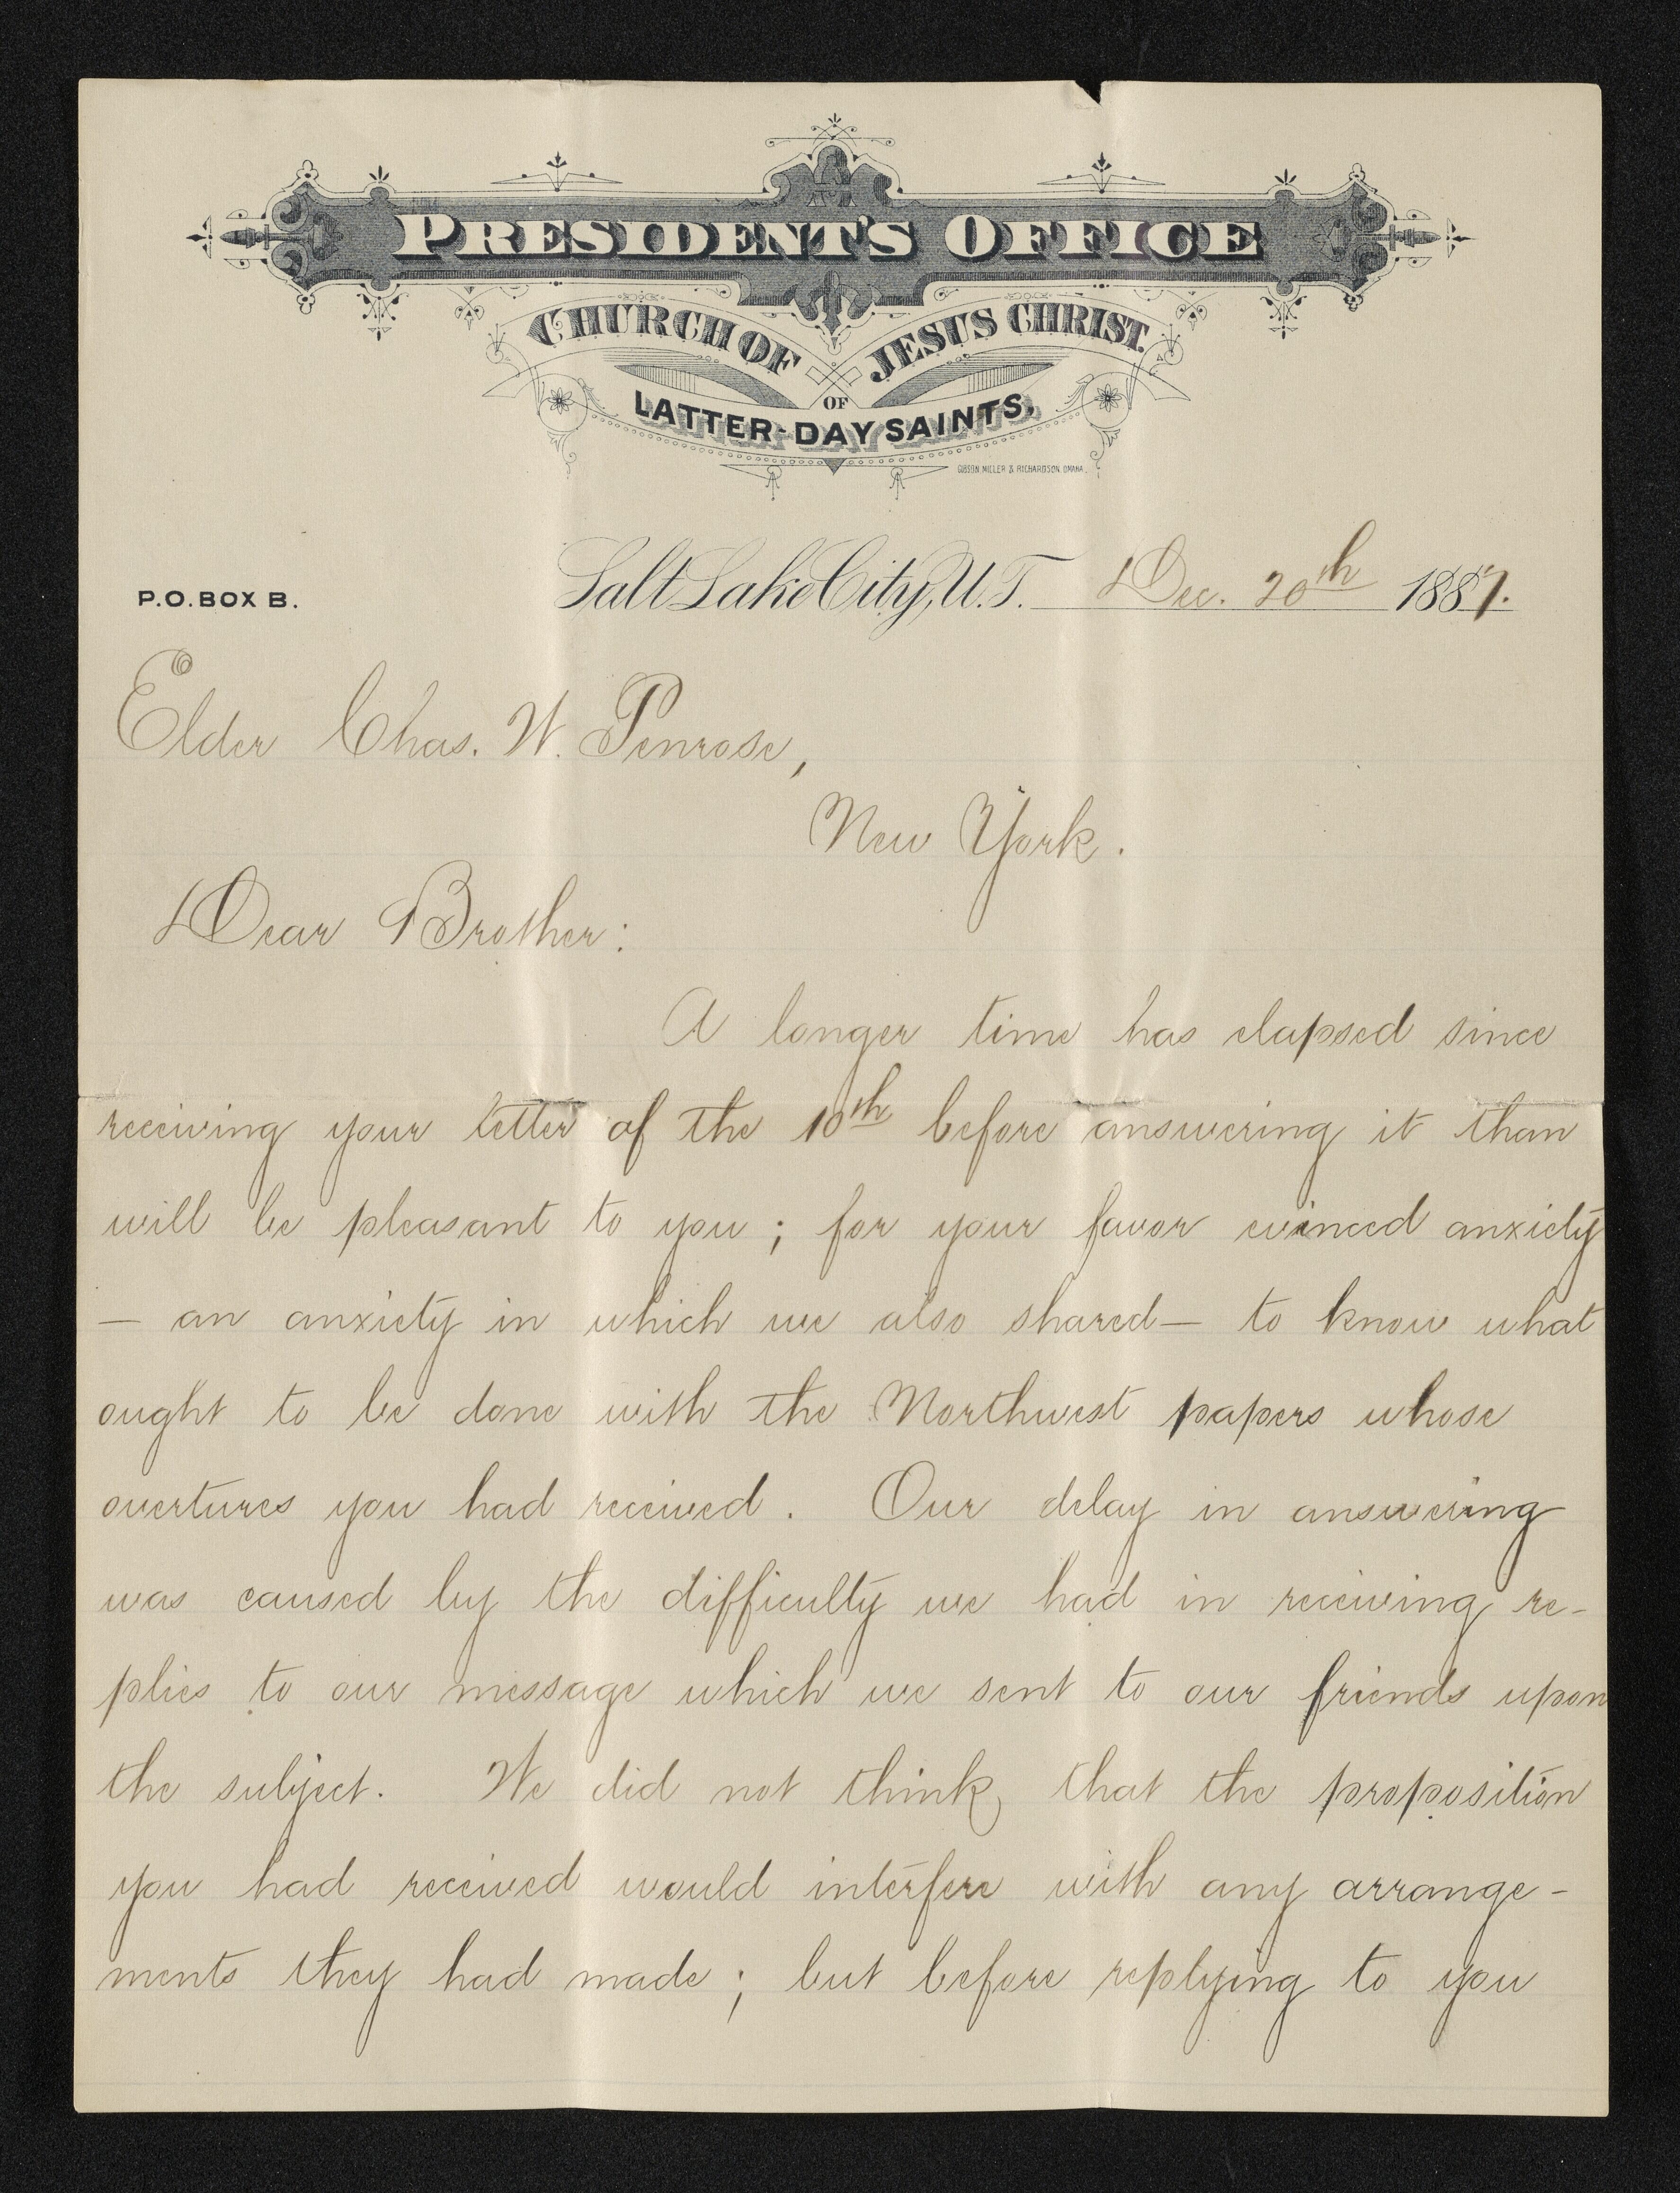 PRESIDENT'S OFFICE
CHURCH OF JESUS CHRIST
OF
LATTER-DAY SAINTS,
GIBSON MILLER & RICHARDSON, OMAHA.
P.O. BOX B.
Salt Lake City, U.T. Dec. 20th 1887.
Elder Chas. W. Penrose,
New York.
Dear Brother:
A longer time has elapsed since
receiving your letter of the 10th before answering it than
will be pleasant to you; for your favor evinced anxiety
— an anxiety in which we also shared — to know what
ought to be done with the Northwest papers whose
overtures you had received. Our delay in answering
was caused by the difficulty we had in receiving re-
plies to our message which we sent to our friends upon
the subject. We did not think that the proposition
you had received would interfere with any arrange-
ments they had made; but before replying to you